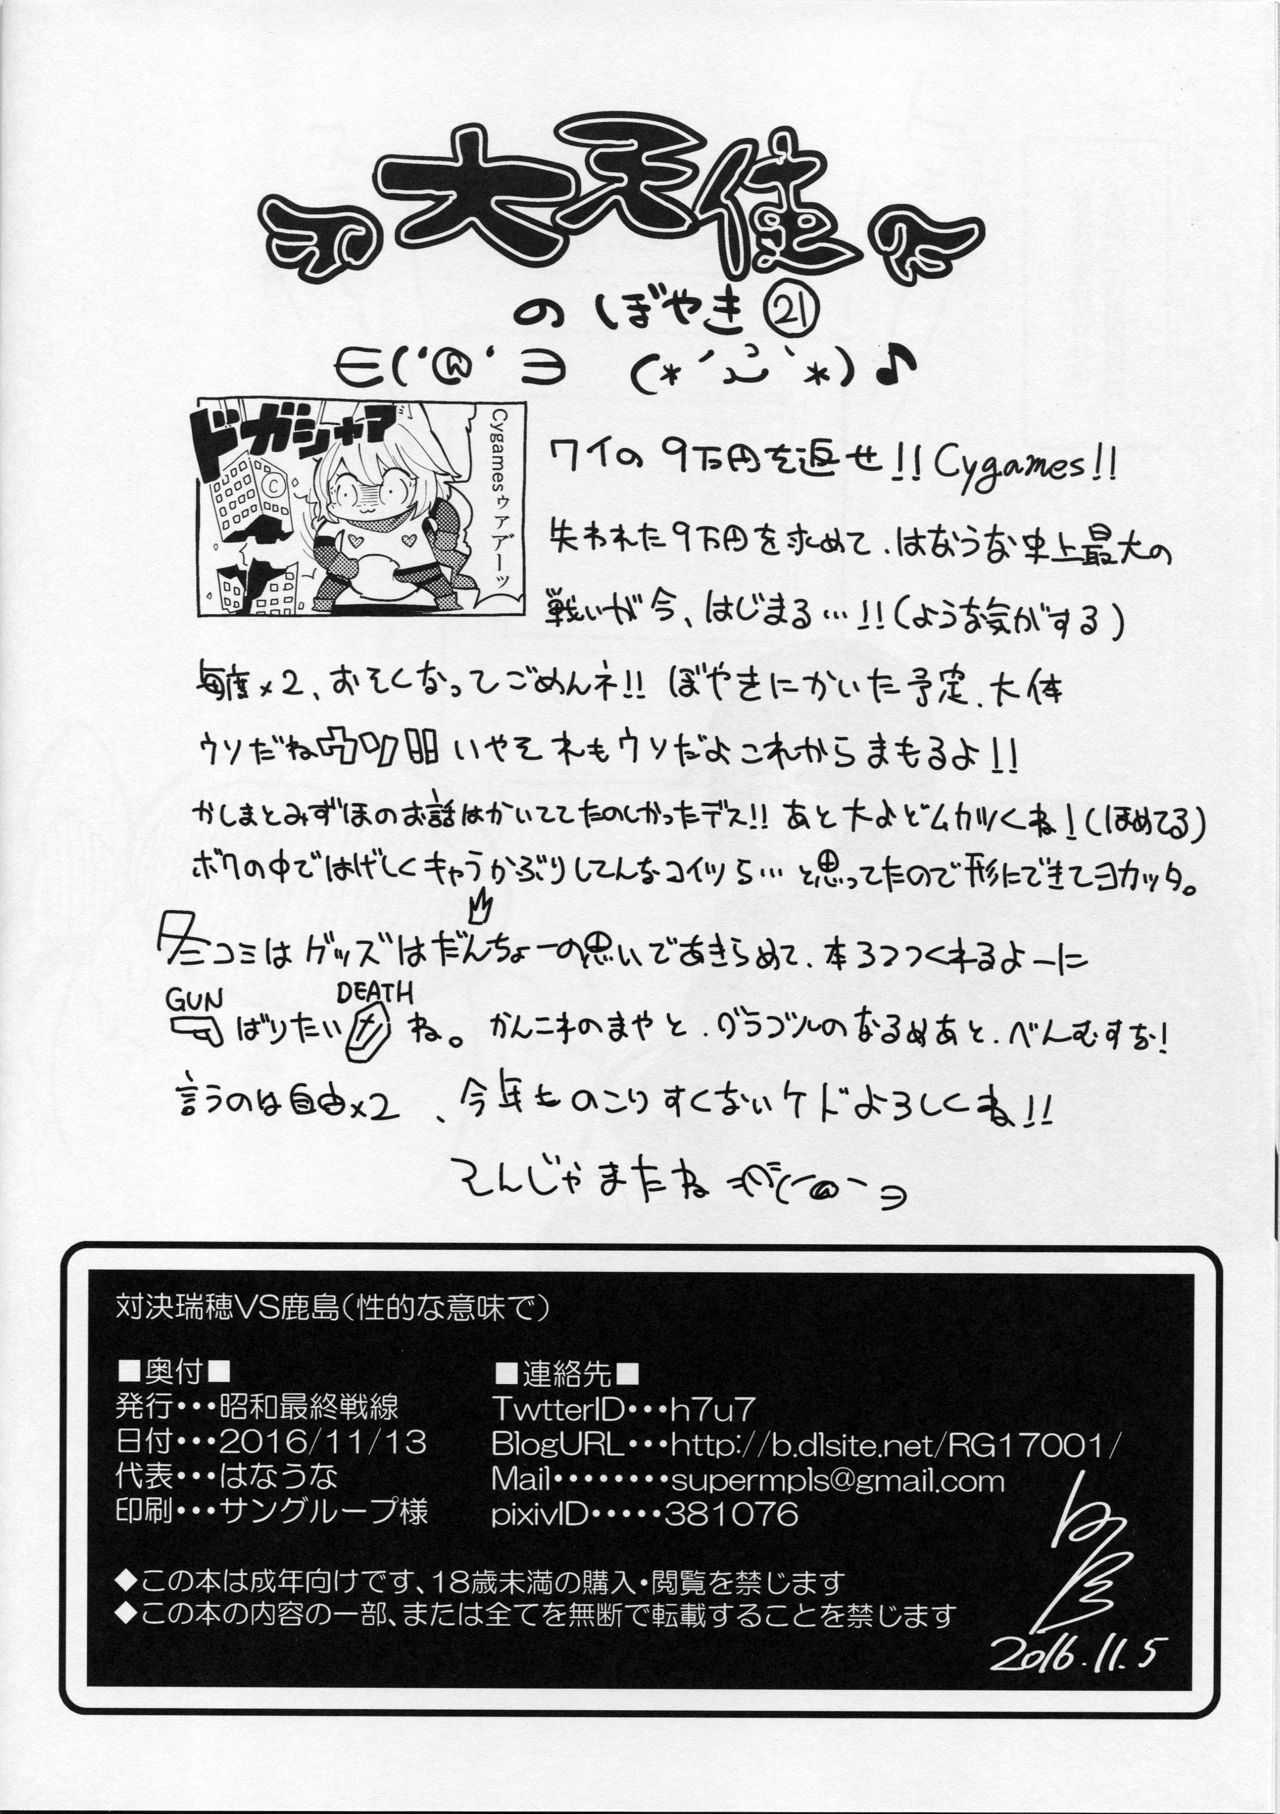 大天使
のぼやき㉑
∈('@' ∋ (*´ `*)♪
ドガシャァ
Cygamesゥアアーッ
©
ワイの9万円を返せ!!Cygames!!
失われた9万円を求めて、はなうな史上最大の
戦いが今、はじまる…!!(ような気がする)
毎度×2、おそくなってごめんネ!! ぼやきにかいた予定、大体
ウソだねウソ!!いやそれもウソだよこれからまもるよ!!
かしまとみずほのお話はかいててたのしかったデス!! あと大よどムカツくね!(ほめてる)
ボクの中ではげしくキャラかぶりしてんなコイツら…と思ってたので形にできてヨカッタ。
冬コミはグッズはだんちょーの思いであきらめて、本3つつくれるよーに
GUN DEATH
ばりたいナね。かんこれのまやと、グラブルのなるめあと、べんむすな!
言うのは自由×2、今年ものこりすくないケドよろしくね!!
そんじゃまたね
対決瑞穂VS鹿島(性的な意味で)
■奥付■
発行・・・昭和最終戦線
日付・・・2016/11/13
代表・・・はなうな
印刷・・・サングループ様
■連絡先■
TwtterID・・・h7u7
BlogURL・・・http://b.dlsite.net/RG17001/
Mail・・・・・・・・supermpls@gmail.com
pixivID・・・・・381076
◆この本は成年向けです、18歳未満の購入・閲覧を禁じます
◆この本の内容の一部、または全てを無断で転載することを禁じます
2016.11.5